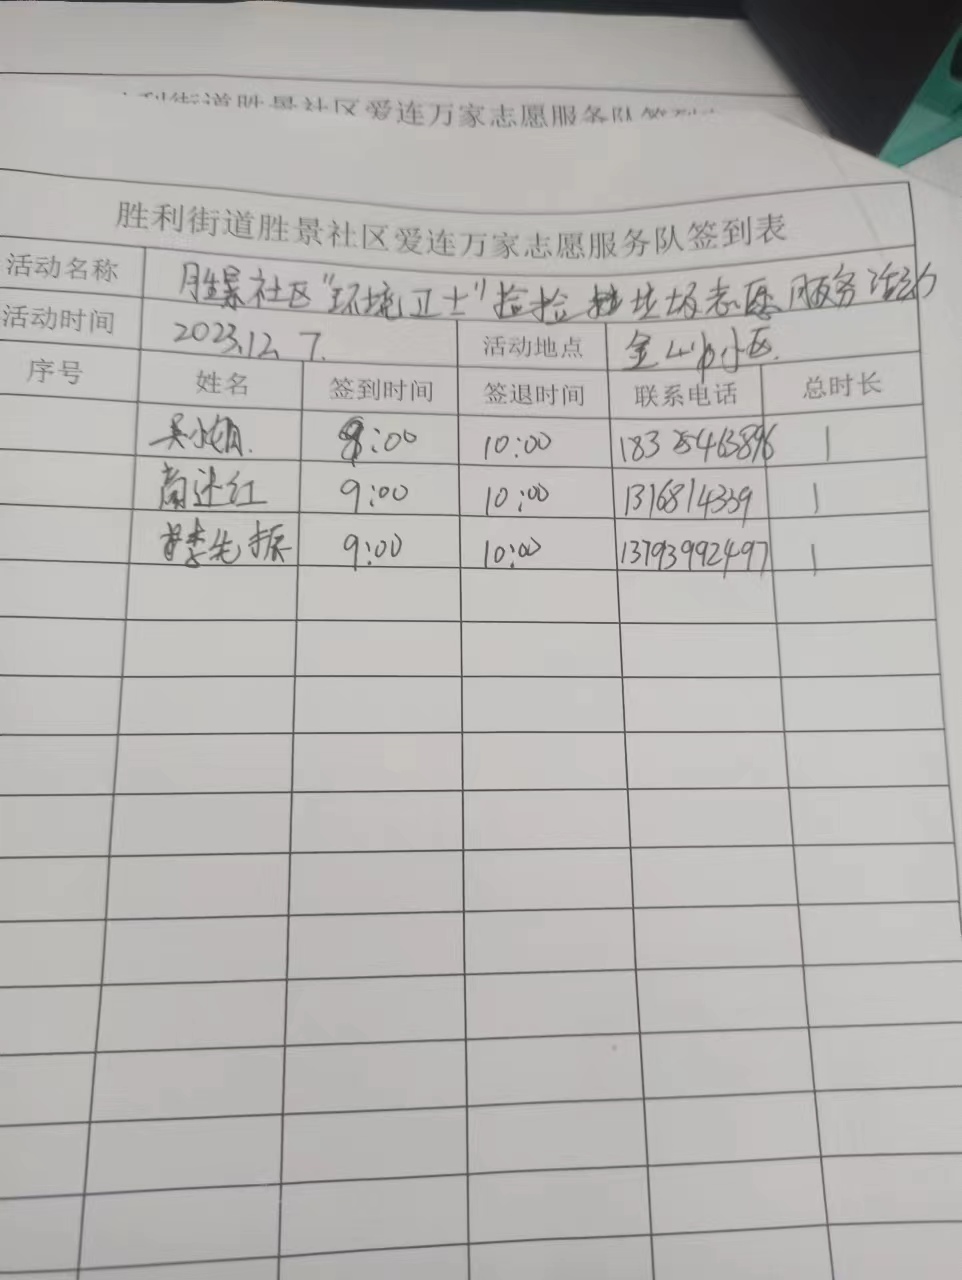 利街道胜景社区爱连万家志愿服务队签到
胜利街道胜景社区爱连万家志愿服务队签到表
活动名称 胜景社区"环境卫士"捡捡垃圾志愿服务活动
活动时间 2023.12.7. 活动地点 金 小区.
序号 姓名 签到时间 签退时间 联系电话 总时长
吴小娟. 9:00 10:00 18325463896 1
尚述红 9:00 10:00 1316814339 1
李先振 9:00 10:00 13793992497 1